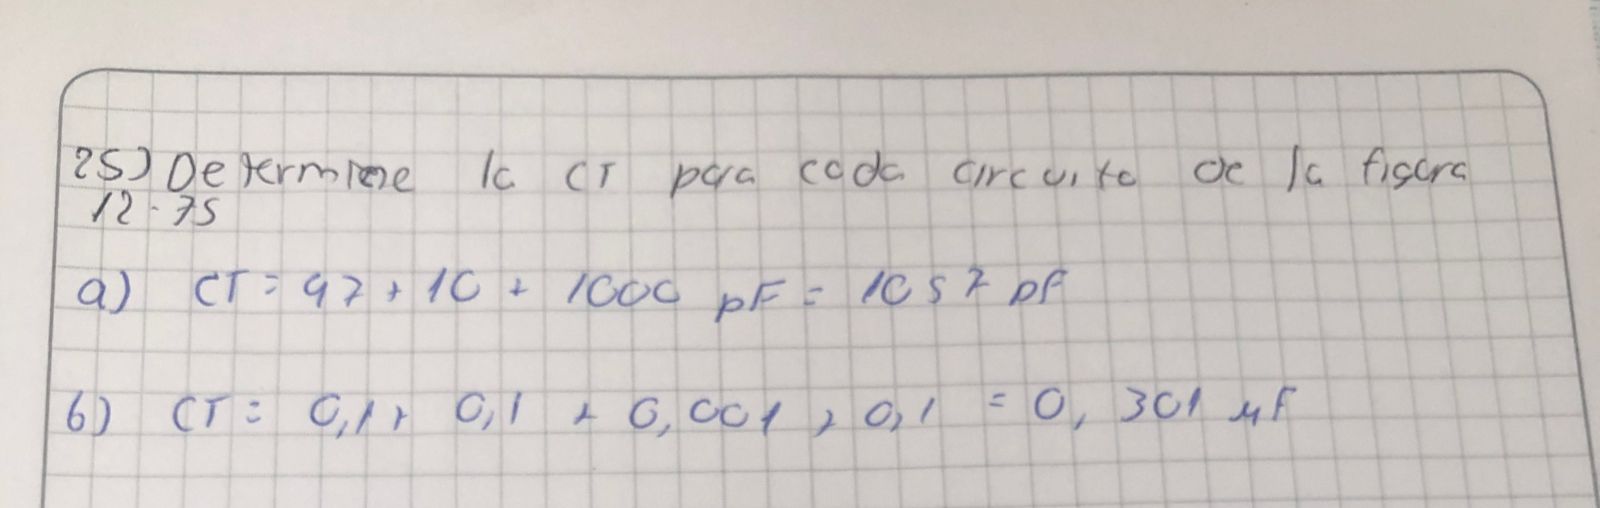 25) Determine la CT para cada circuito de la figura
12-75
a) CT = 47 + 10 + 1000 pF = 1057 pF
b) CT = 0,1 + 0,1 + 0,001 + 0,1 = 0,301 µF